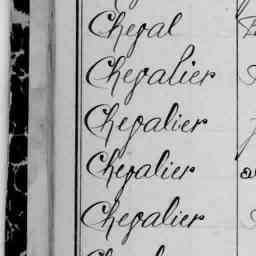 Cheval
Chevalier
Chevalier
Chevalier
Chevalier